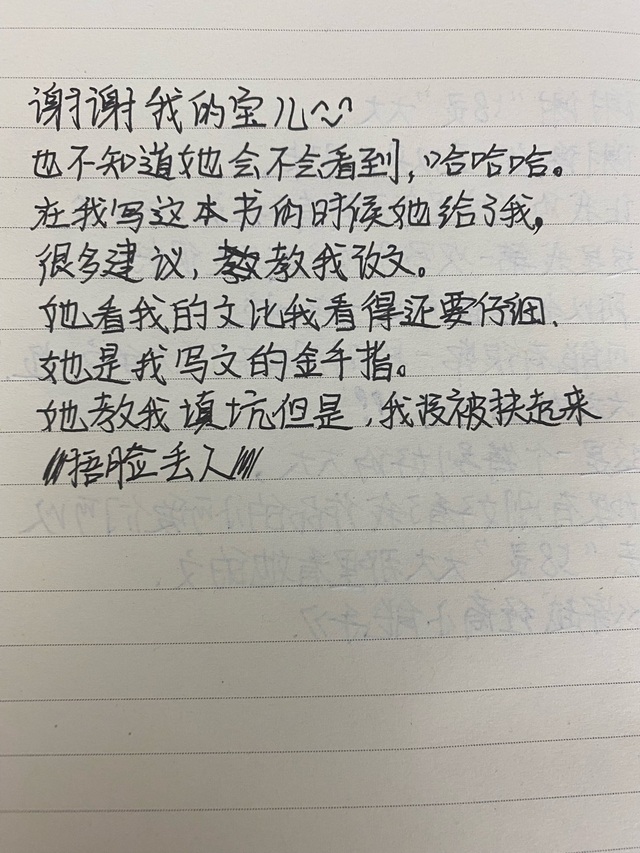 谢谢我的宝儿~~
也不知道她会不会看到,哈哈哈。
在我写这本书的时候她给了我。
很多建议,教教我改文。
她看我的文比我看得还要仔细.
她是我写文的金手指。
她教我填坑但是,我没被扶起来
///捂脸丢人///